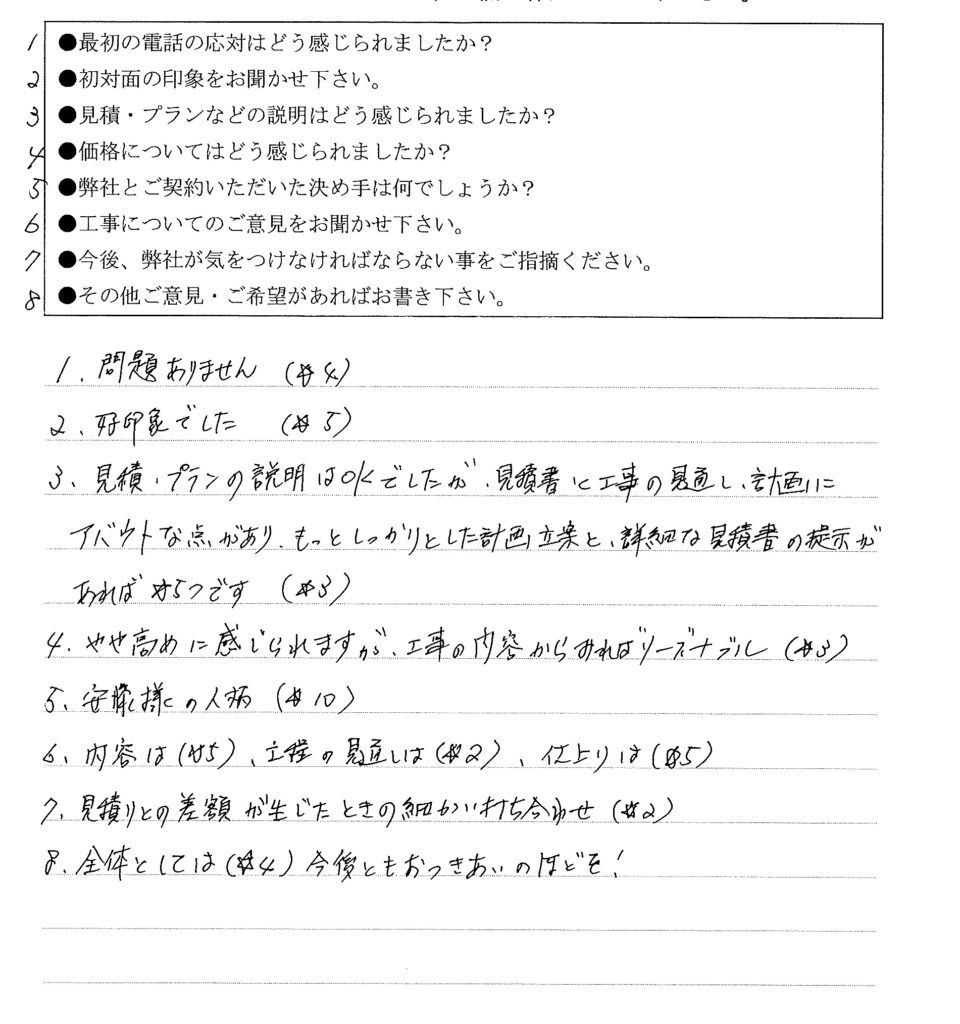 1 ●最初の電話の応対はどう感じられましたか？
2 ●初対面の印象をお聞かせ下さい。
3 ●見積・プランなどの説明はどう感じられましたか？
4 ●価格についてはどう感じられましたか？
5 ●弊社とご契約いただいた決め手は何でしょうか？
6 ●工事についてのご意見をお聞かせ下さい。
7 ●今後、弊社が気をつけなければならない事をご指摘ください。
8 ●その他ご意見・ご希望があればお書き下さい。
1. 問題ありません (☆4)
2、好印象でした (☆5)
3、見積・プランの説明はOKでしたが、見積書に工事の見通し、計画に
アバウトな点があり、もっとしっかりとした計画立案と、詳細な見積書の提示が
あれば☆5つです (☆3)
4、やや高めに感じられますが、工事の内容からすればリーズナブル (☆3)
5、安藤様の人柄 (☆10)
6、内容は(☆5)、工程の見通しは(☆2)、仕上りは(☆5)
7、見積りとの差額が生じたときの細かい打ち合わせ (☆2)
8、全体としては(☆4) 今後ともおつきあいのほどを！